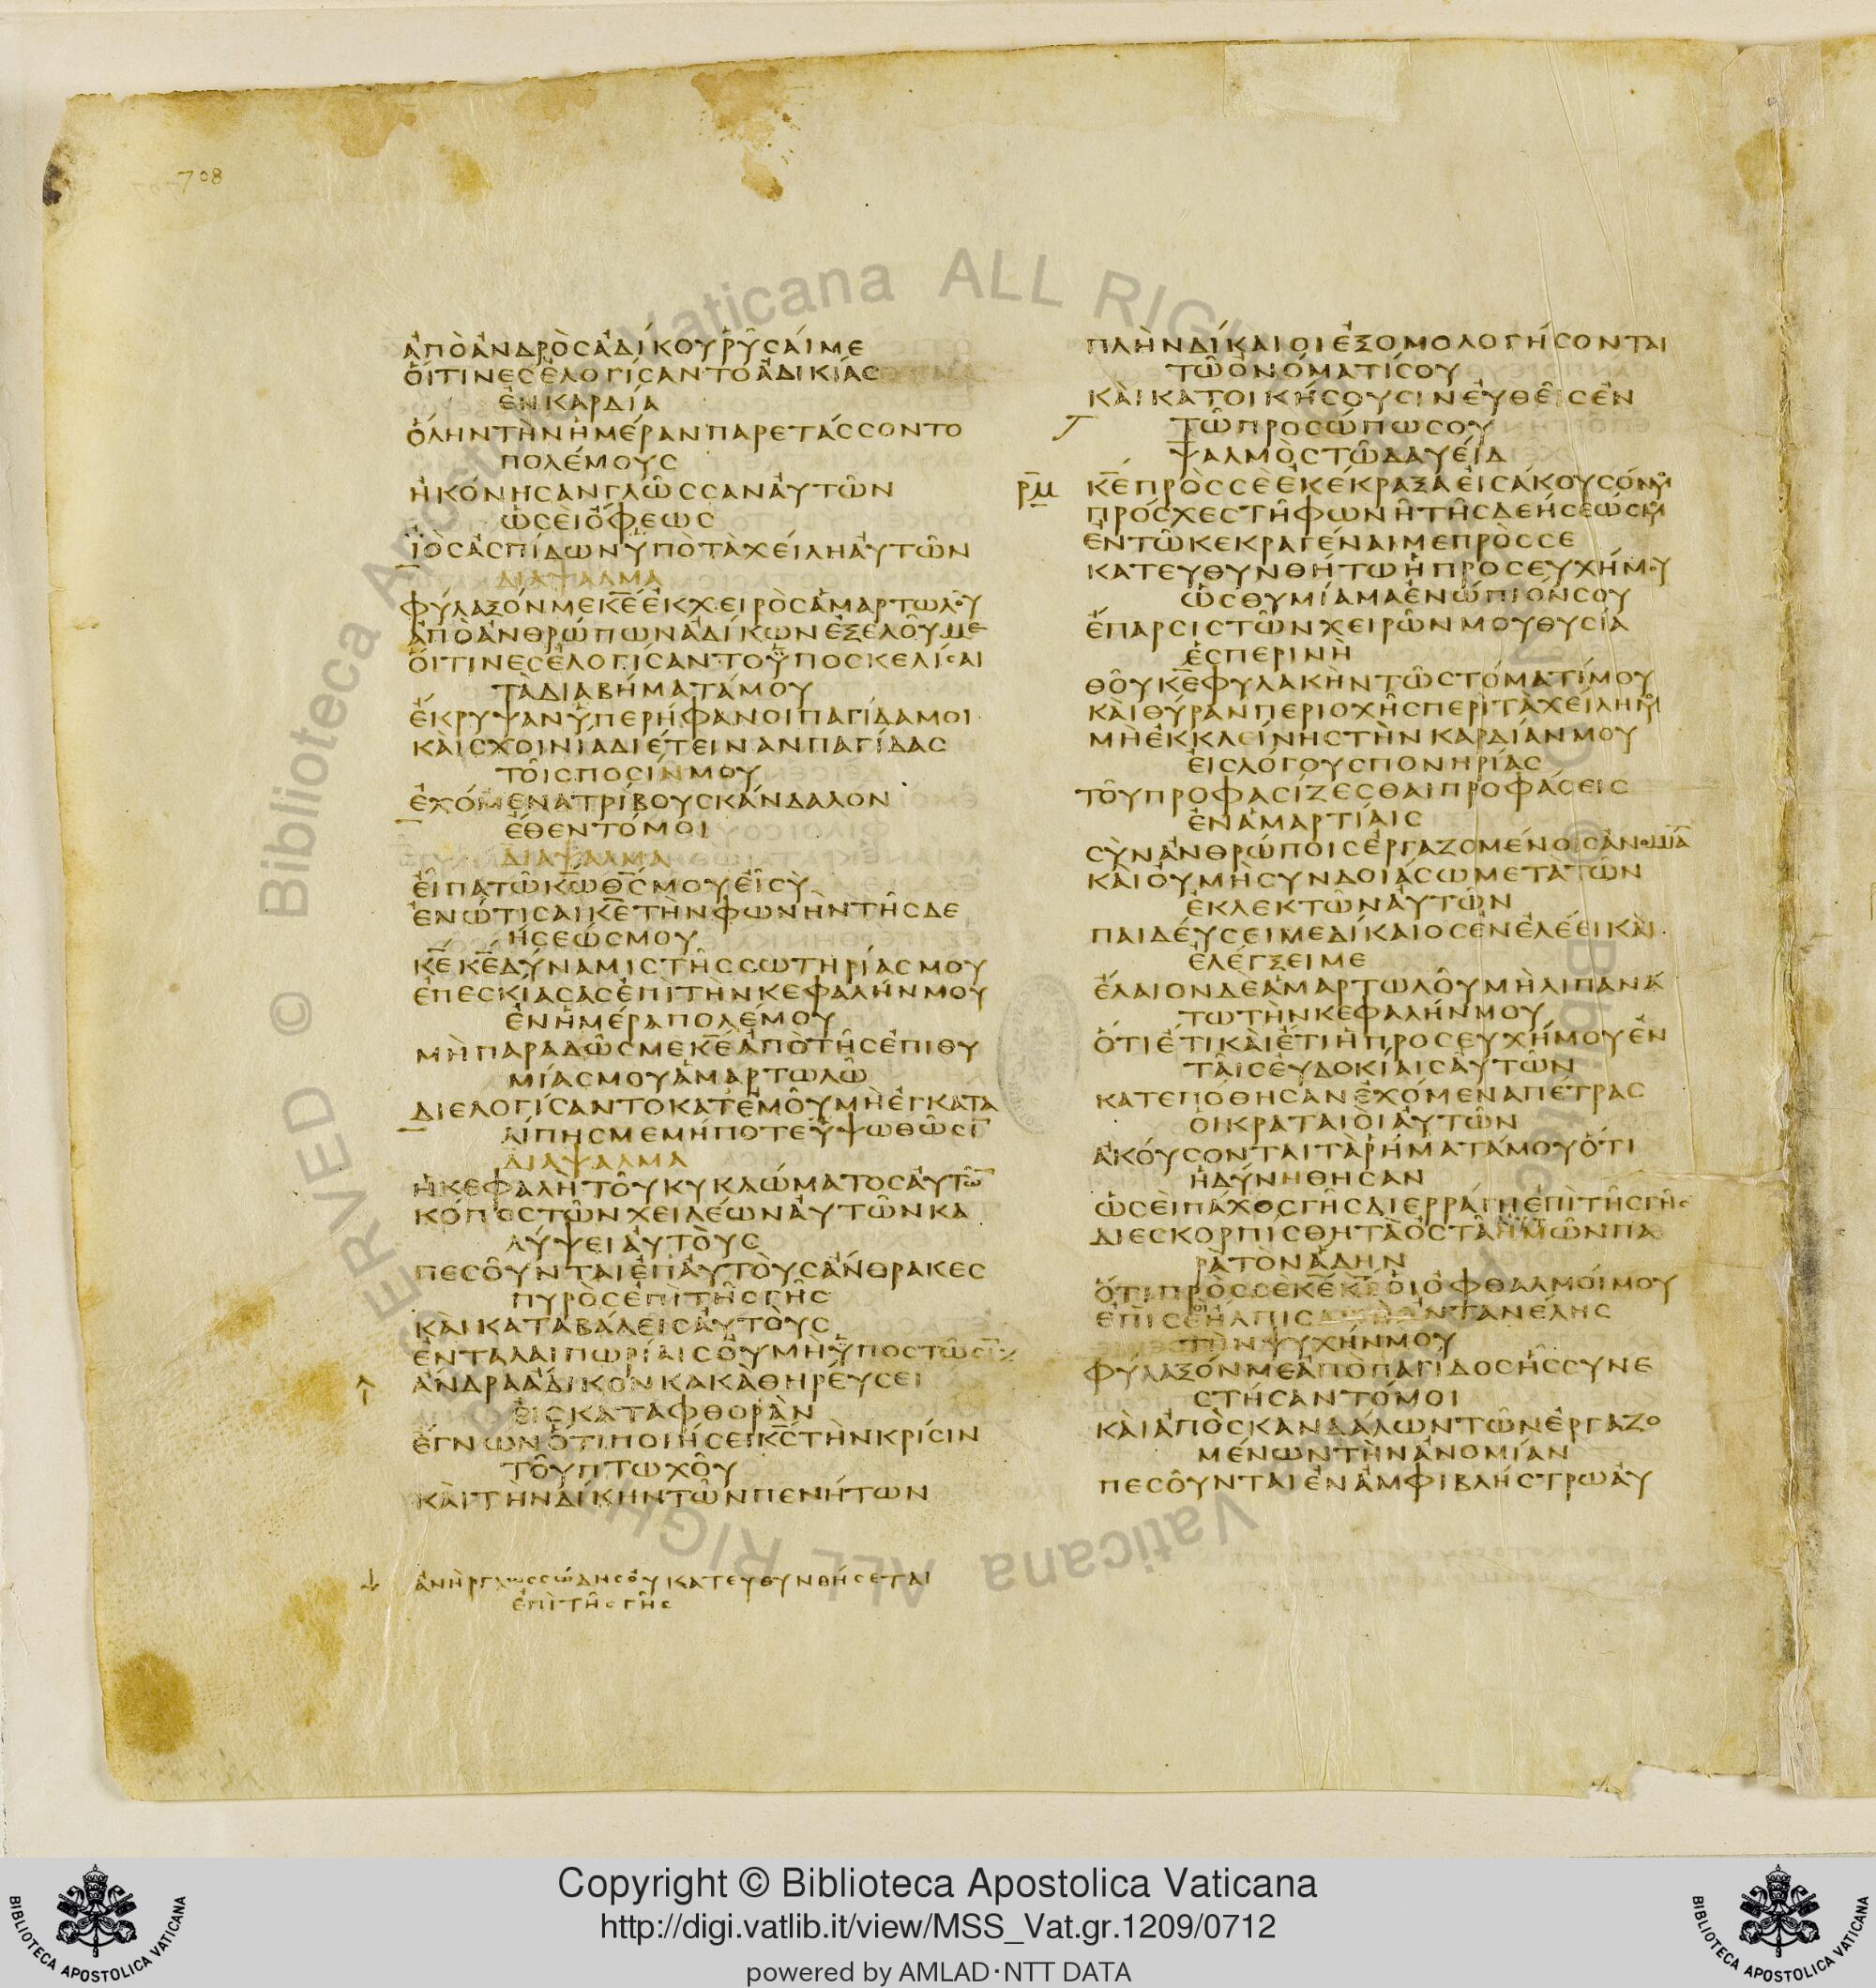 708
ἀπὸἀνδρὸσἀδίκουῥῦσαίμε
ὅιτινεσἐλογίσαντοἀδικίασ
ἐνκαρδία
ὅληντὴνἡμέρανπαρετάσσοντο
πολέμουσ
ἠκόνησανγλῶσσανἀυτῶν
ὡσεὶὄφεωσ
ἰὸσἀσπίδωνὑπὸτὰχείληἀυτῶν
διαψαλμα
φύλαξόνμεκ̅ε̅ἐκχειρὸσἁμαρτωλοῦ
ἀπὸἀνθρώπωνἀδίκωνἐξελοῦμε
ὅιτινεσἐλογίσαντοὑποσκελίσαι
τὰδιαβήματάμου
ἔκρυψανὑπερήφανοιπαγίδαμοι
κὰισχοινίαδιέτεινανπαγίδασ
τοῖσποσίνμου
ἐχόμενατρίβουσκάνδαλον
ἔθεντόμοι
διαψαλμα
ἐῖπατῶκ̅ω̅θ̅σ̅μουἐῖσὺ
ἐνώτισαικ̅ε̅τὴνφωνὴντῆσδε
ήσεώσμου
κ̅ε̅κ̅ε̅δύναμιστῆσσωτηρίασμου
ἐπεσκίασασἐπὶτὴνκεφαλήνμου
ἐνἡμέραπολέμου
μὴπαραδῶσμεκ̅ε̅ἀπὸτῆσἐπιθυ
μίασμουἁμαρτωλῶ
διελογίσαντοκατἐμοῦμὴἐγκατα
λίπησμεμήποτεὑψωθῶσι̅
διαψαλμα
ἡκεφαλὴτοῦκυκλώματοσἀυτῶ̅
κόποστῶνχειλέωνἀυτῶνκα
λύψειἀυτὸυσ
πεσοῦνταιἐπἀυτὸυσἄνθρακεσ
πυρὸσἐπιτῆσγῆσ
κὰικαταβαλεῖσἀυτὸυσ
ἐνταλαιπωρίαισὀυμὴὑποστῶσι̅
ἄνδραάδικονκακὰθηρέυσει
ἐισκαταφθορὰν
ἔγνωνὅτιποιήσεικ̅σ̅τὴνκρίσιν
τοῦπτωχοῦ
κὰιτὴνδίκηντῶνπενήτων
ἀνὴργλωσσώδησὀυκατευθυνθήσεται
ἐπὶτῆσγῆσ
πλὴνδίκαιοιἐξομολογήσονται
τῶὀνόματίσου
κὰικατοικήσουσινἐυθεῖσἐν
τῶπροσώπωσου
ψαλμὸστῶδαυείδ
ρ̅μ̅
κ̅ε̅πρὸσσὲἐκέκραξαἐισάκουσόνμου
πρόσχεστῆφωνῆτῆσδεήσεώσμου
ἐντῶκεκραγέναιμεπρὸσσε
κατευθυνθήτωἡπροσευχήμου
ὡσθυμίαμαἐνώπιόνσου
ἔπαρσιστῶνχειρῶνμουθυσία
ἑσπερινὴ
θοῦκ̅ε̅φυλακὴντῶστόματίμου
κὰιθύρανπεριοχῆσπερὶτὰχείλημου
μὴἐκκλείνηστὴνκαρδίανμου
ἐισλόγουσπονηρίασ
τοῦπροφασίζεσθαιπροφάσεισ
ἐνἁμαρτίαισ
σὺνἀνθρώποισἐργαζομένοισἀνομία̅
κὰιὀυμὴσυνδοιάσωμετὰτῶν
ἐκλεκτῶνἀυτῶν
παιδέυσειμεδίκαιοσἐνἐλέεικὰι
ἐλέγξειμε
ἔλαιονδὲἁμαρτωλοῦμὴλιπανά
τωτὴνκεφαλήνμου
ὅτιἔτικὰιἔτιἡπροσευχήμουἐν
ταῖσἐυδοκίαισἀυτῶν
κατεπόθησανἐχόμεναπέτρασ
ὁικραταιὸιἀυτῶν
ἀκούσονταιτὰῥήματάμουὅτι
ἡδύνηθησαν
ὡσεὶπάχοσγῆσδιερράγηἐπὶτῆσγῆσ
διεσκορπίσθητὰὀστᾶἡμῶνπα
ρὰτὸνἅδην
ὅτιπρὸσσὲκ̅ε̅κ̅ε̅ὁιὀφθαλμόιμου
ἐπὶσὲἤλπισμὴἀντανέλησ
τὴνψυχήνμου
φύλαξόνμεἀπὸπαγίδοσἧσσυνε
στήσαντόμοι
κὰιἀπὸσκανδάλωντῶνἐργαζο
μένωντὴνἀνομίαν
πεσοῦνταιἐνἀμφιβλήστρωἀυ
Copyright © Biblioteca Apostolica Vaticana
http://digi.vatlib.it/view/MSS_Vat.gr.1209/0712
powered by AMLAD・NTT DATA
BIBLIOTECA APOSTOLICA VATICANA
BIBLIOTECA APOSTOLICA VATICANA